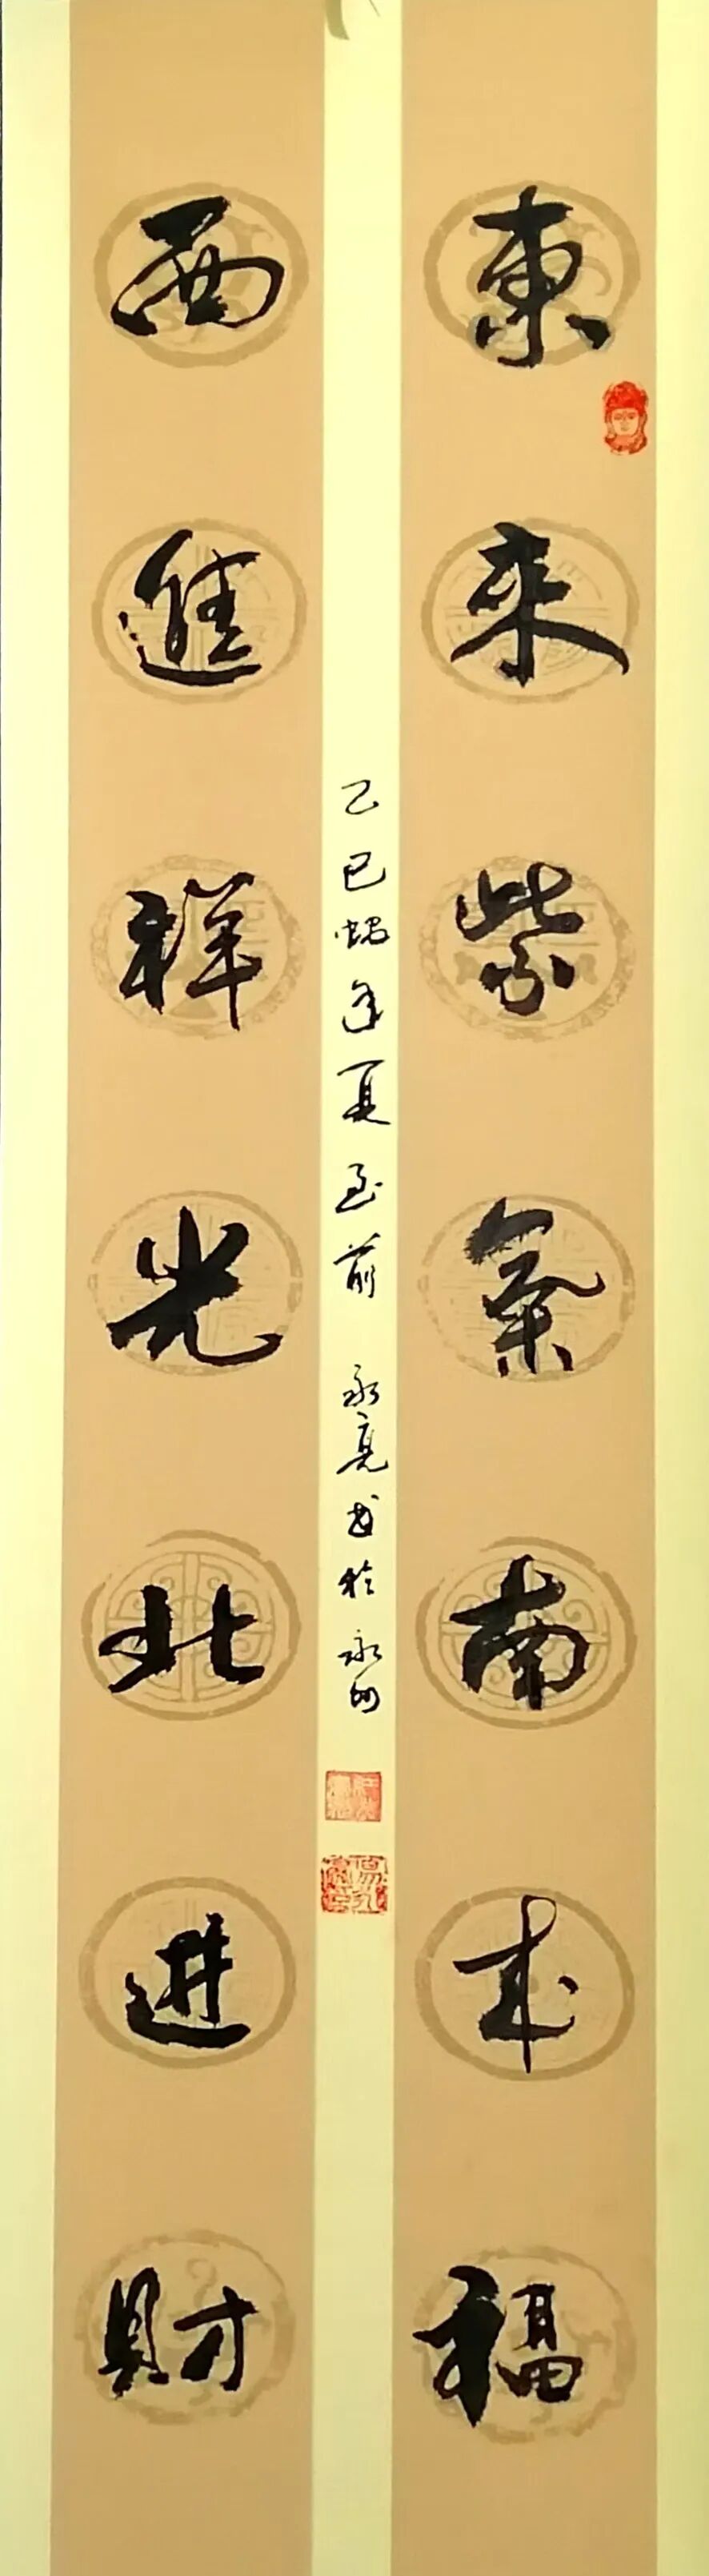 東来紫氣南来福
西進祥光北进財
乙巳蛇年夏至前 永亮书於永州